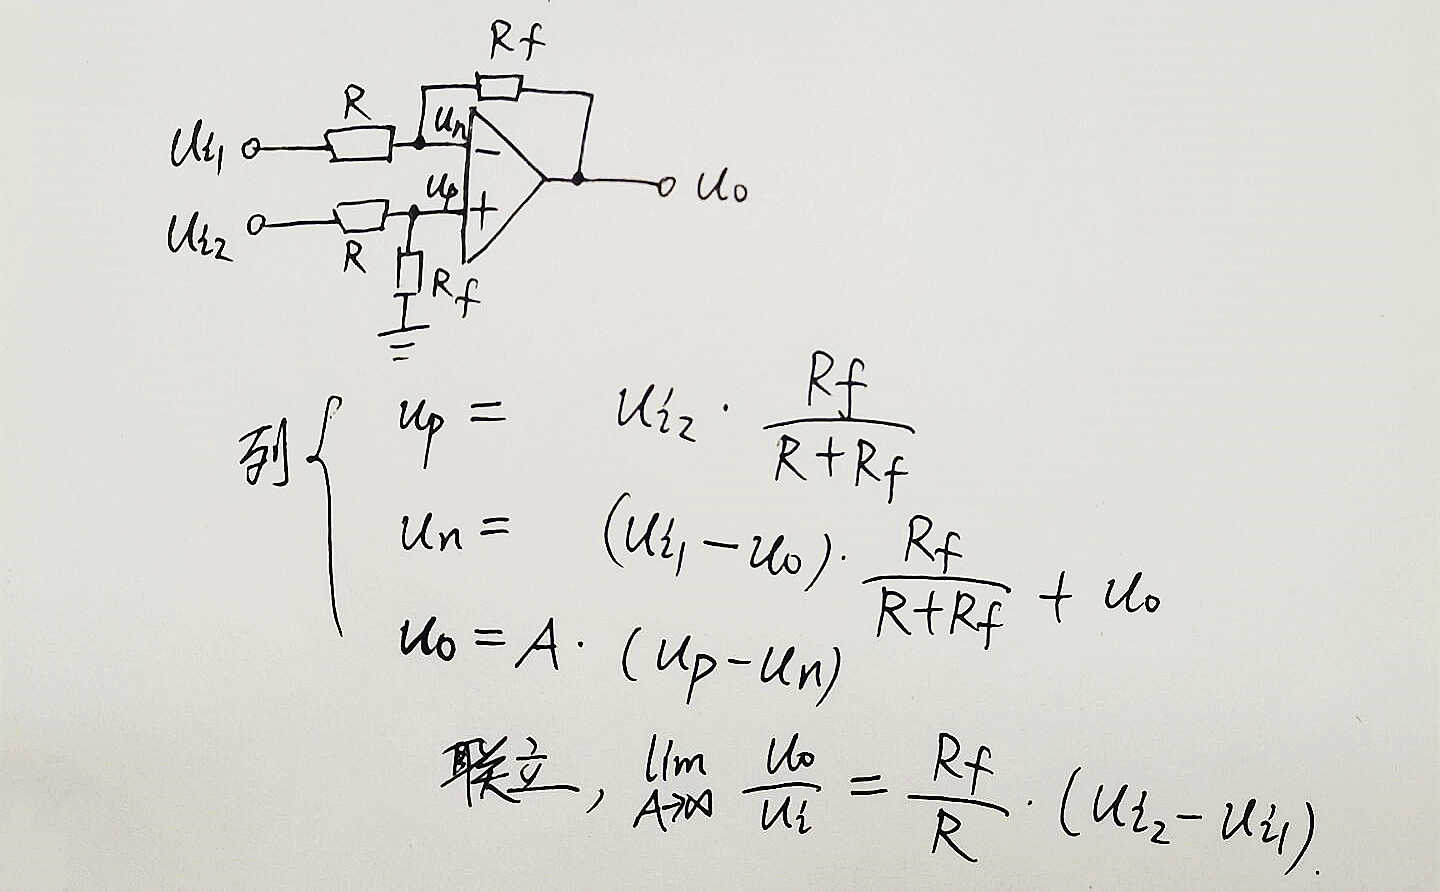 Rf
R
Ui1
un
−
Uo
up
+
Ui2
R
Rf
列 { up = Ui2 · Rf/(R+Rf)
un = (Ui1 − Uo) · Rf/(R+Rf) + Uo
Uo = A · (Up − Un)
联立, lim A→∞ Uo/Ui = Rf/R · (Ui2 − Ui1).